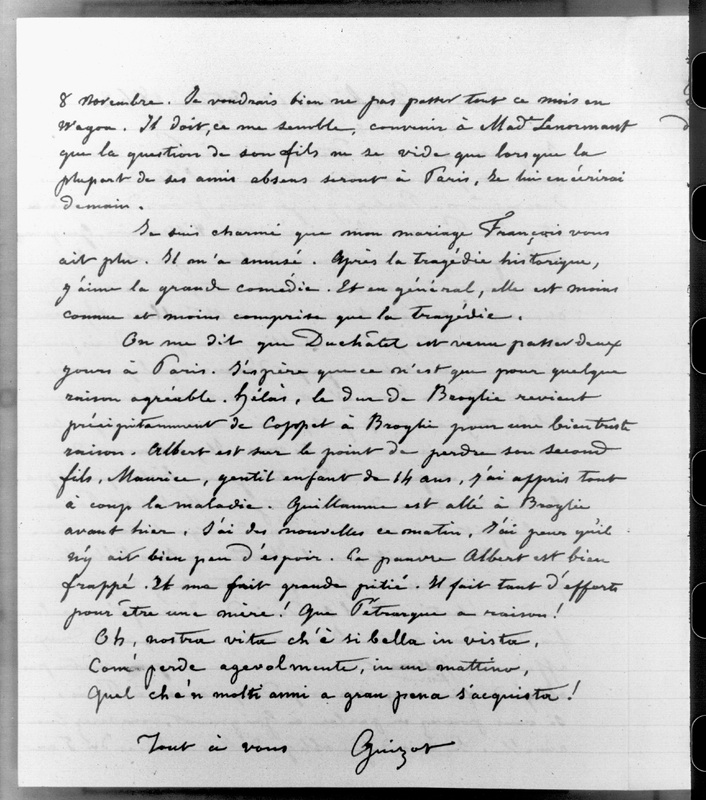 8 novembre. Je voudrais bien ne pas passer tout ce mois en
Wagon. Il doit, ce me semble, convenir à Mad Lenormant
que la question de son fils ne se vide que lorsque la
plupart de ses amis absens seront à Paris, Je lui en écrirai
demain.
Je suis charmé que mon mariage François vous
ait plu. Il m'a amusé. Après la tragédie historique,
j'aime la grande comédie. Et en général, elle est moins
connue et moins comprise que la tragédie.
On me dit que Duchâtel est venu passer deux
jours à Paris. J'espère que ce n'est que pour quelque
raison agréable. hélas, le duc de Broglie revient
précipitamment de Coppet à Broglie pour une bien triste
raison. Albert est sur le point de perdre son second
fils, Maurice, gentil enfant de 14 ans, j'ai appris tout
à coup la maladie. Guillaume est allé à Broglie
avant hier. J'ai des nouvelles ce matin, J'ai peur qu'il
n'y ait bien peu d'espoir. Ce pauvre Albert est bien
frappé. Il me fait grande pitié. Il fait tant d'efforts
pour être une mère! Que Pétrarque a raison!
Oh, nostra vita ch'è si bella in vista,
Com' perde agevolmente, in un mattino,
Quel che'n molti anni a gran pena s'acquista!
Tout à vous Guizot